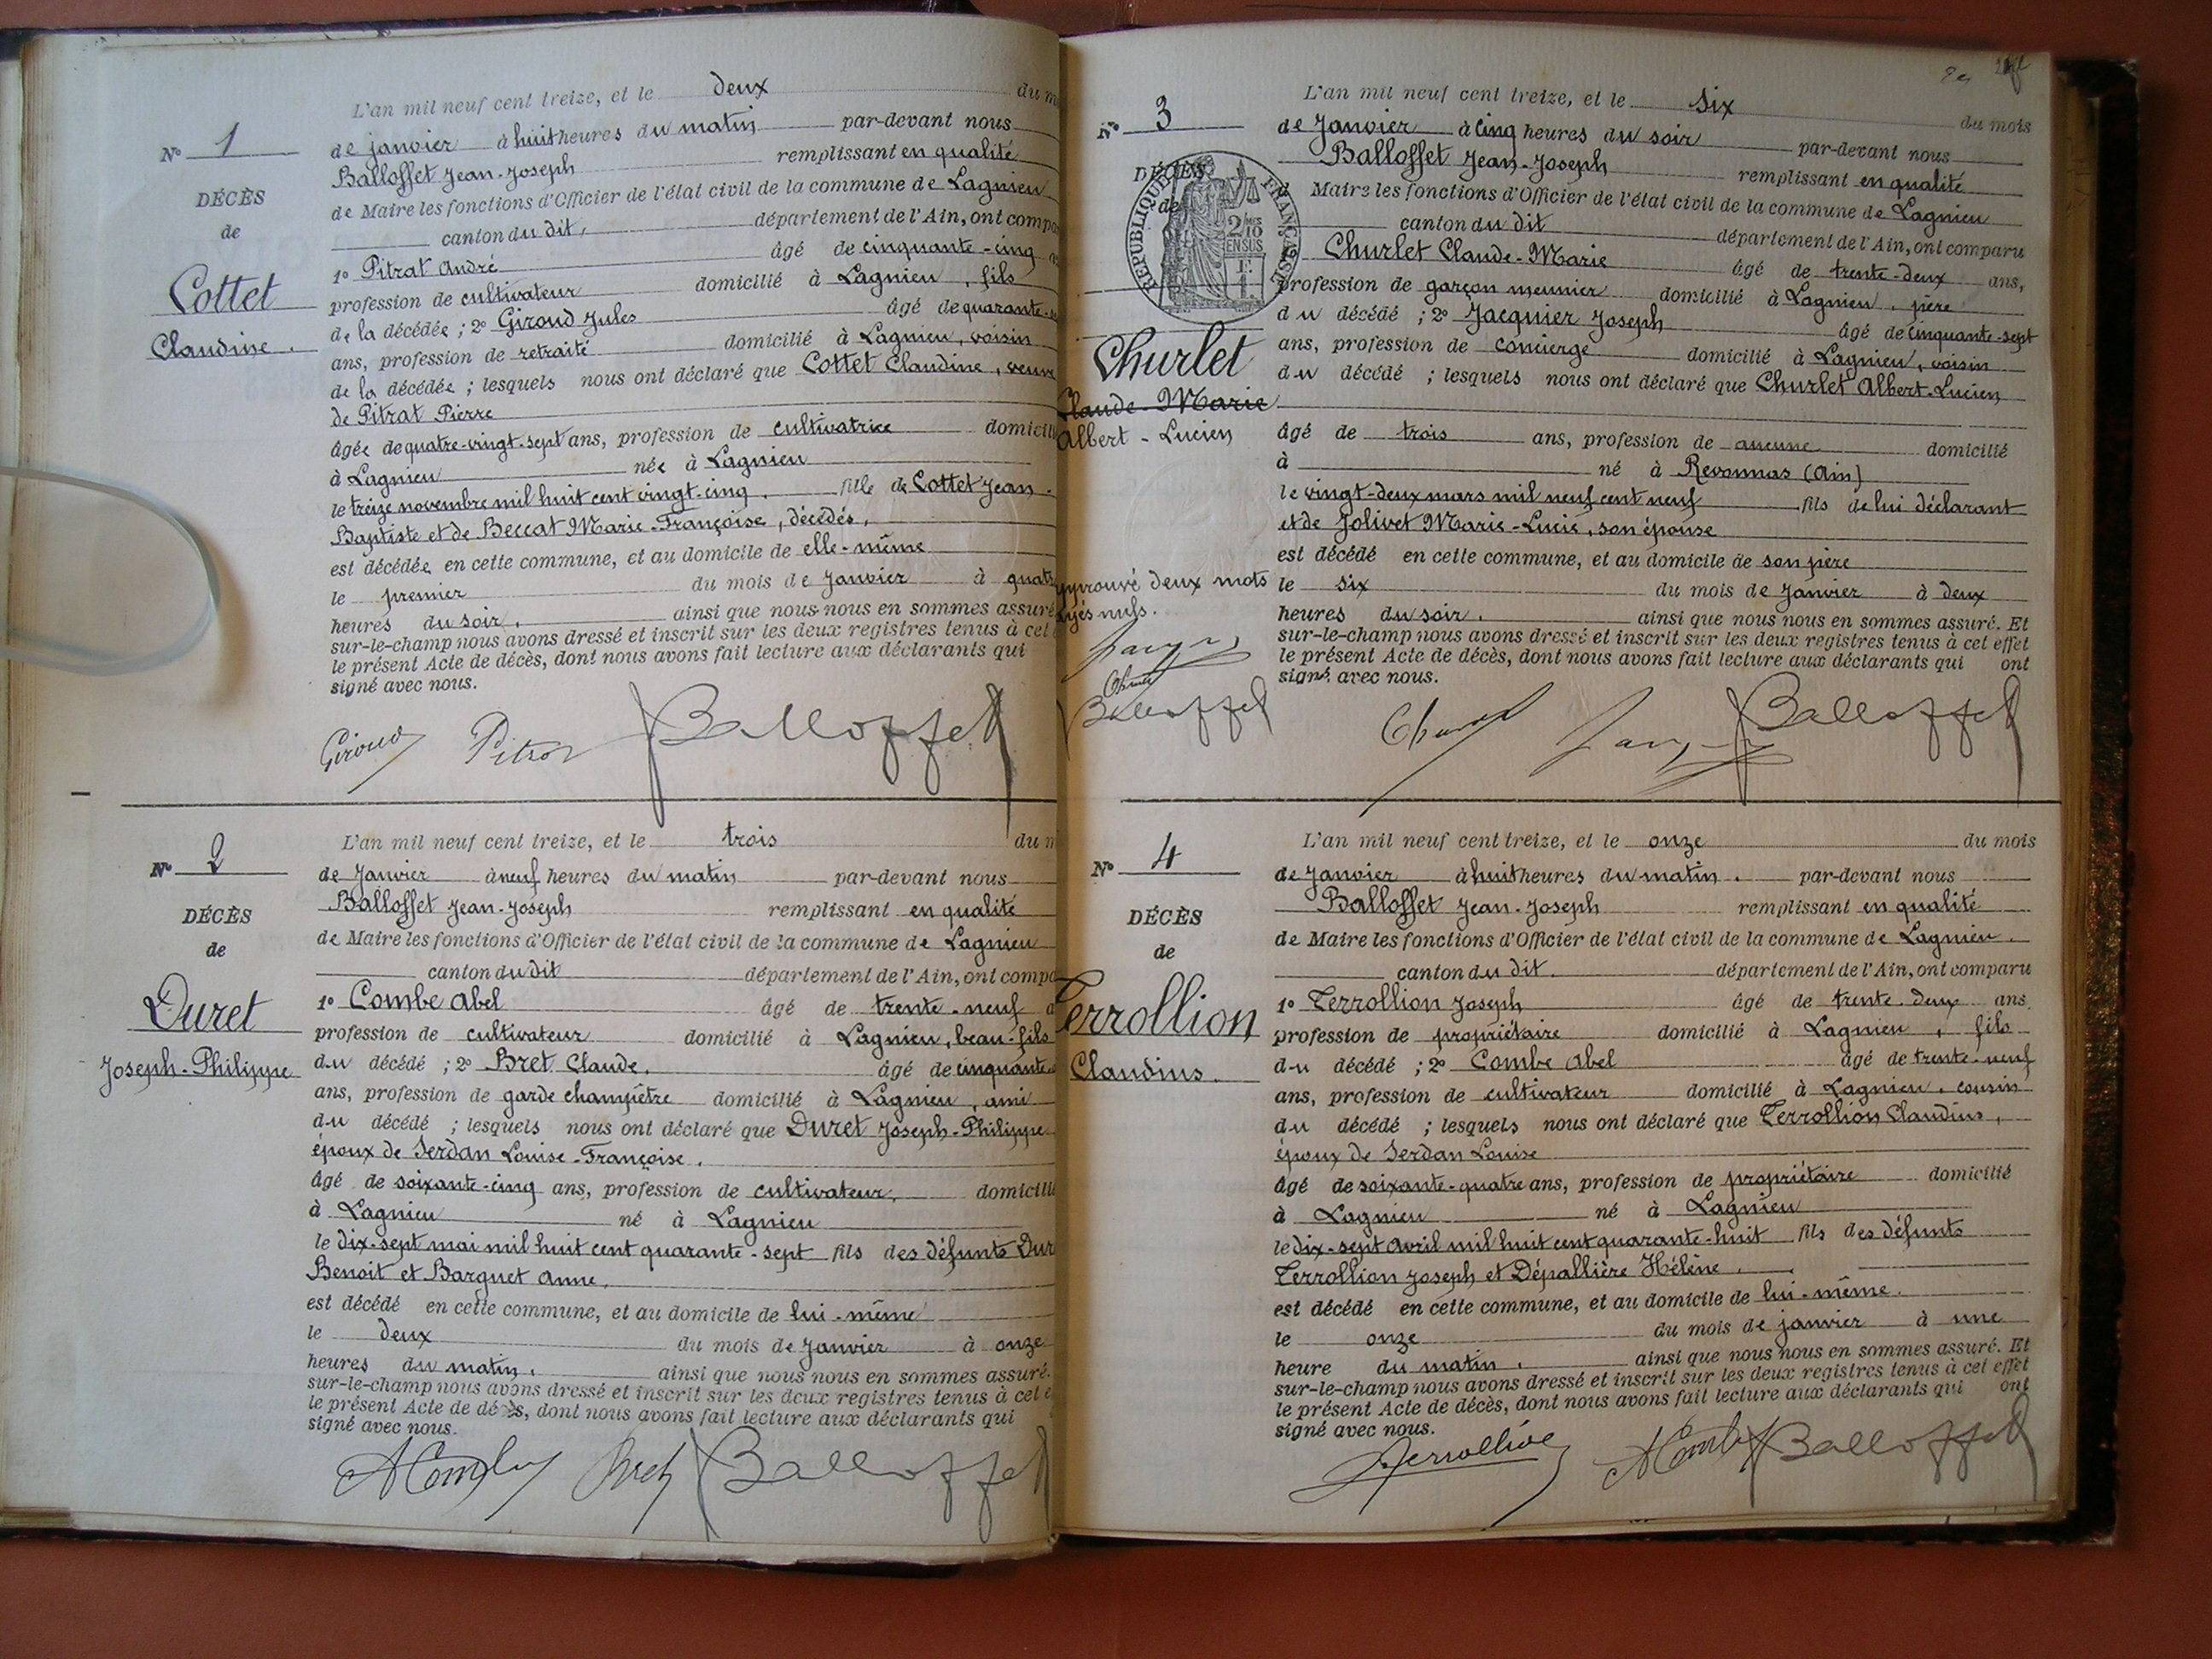 L'an mil neuf cent treize, et le deux du m
Nº 1
de janvier à huit heures du matin par-devant nous
Balloffet Jean-Joseph remplissant en qualité
DÉCÈS
de Maire les fonctions d'Officier de l'état civil de la commune de Lagnieu
de
canton du dit, département de l'Ain, ont compa
1º Pitrat André âgé de cinquante-cinq
Cottet
profession de cultivateur domicilié à Lagnieu, fils
de la décédée ; 2º Giroud Jules âgé de quarante-
Claudine.
ans, profession de retraité domicilié à Lagnieu, voisin
de la décédée ; lesquels nous ont déclaré que Cottet Claudine, veuve
de Pitrat Pierre
âgée de quatre-vingt-sept ans, profession de cultivatrice domicili
à Lagnieu née à Lagnieu
le treize novembre mil huit cent vingt-cinq. fille de Cottet Jean-
Baptiste et de Beccat Marie-Françoise, décédés,
est décédée en cette commune, et au domicile de elle-même
le premier du mois de Janvier à quat
heures du soir, ainsi que nous nous en sommes assuré
sur-le-champ nous avons dressé et inscrit sur les deux registres tenus à cet
le présent Acte de décès, dont nous avons fait lecture aux déclarants qui
signé avec nous.
Giroud Pitrat Balloffet
L'an mil neuf cent treize, et le trois du m
Nº 2
de Janvier à neuf heures du matin par-devant nous
Balloffet Jean-Joseph remplissant en qualité
DÉCÈS
de Maire les fonctions d'Officier de l'état civil de la commune de Lagnieu
de
canton du dit département de l'Ain, ont compa
1º Combe Abel âgé de trente-neuf
Duret
profession de cultivateur domicilié à Lagnieu, beau-fils
Joseph-Philippe
du décédé ; 2º Bret Claude, âgé de cinquante
ans, profession de garde champêtre domicilié à Lagnieu, ami
du décédé ; lesquels nous ont déclaré que Duret Joseph-Philippe
époux de Serdan Louise-Françoise,
âgé de soixante-cinq ans, profession de cultivateur, domicili
à Lagnieu né à Lagnieu
le dix-sept mai mil huit cent quarante-sept fils des défunts Dur
Benoit et Barquet Anne,
est décédé en cette commune, et au domicile de lui-même
le deux du mois de Janvier à onze
heures du matin, ainsi que nous nous en sommes assuré.
sur-le-champ nous avons dressé et inscrit sur les deux registres tenus à cet e
le présent Acte de décès, dont nous avons fait lecture aux déclarants qui
signé avec nous.
A Combe Bret Balloffet
L'an mil neuf cent treize, et le six du mois
Nº 3
de Janvier à cinq heures du soir par-devant nous
Balloffet Jean-Joseph remplissant en qualité
DÉCÈS
de
RÉPUBLIQUE FRANÇAISE
2/10 EN SUS
Maire les fonctions d'Officier de l'état civil de la commune de Lagnieu
canton du dit département de l'Ain, ont comparu
Churlet Claude-Marie âgé de trente-deux ans,
profession de garçon meunier domicilié à Lagnieu, père
du décédé ; 2º Jacquier Joseph âgé de cinquante-sept
Churlet
ans, profession de concierge domicilié à Lagnieu, voisin
du décédé ; lesquels nous ont déclaré que Churlet Albert-Lucien
Claude-Marie
Albert-Lucien
âgé de trois ans, profession de aucune domicilié
à né à Revonnas (Ain)
le vingt-deux mars mil neuf cent neuf fils de lui déclarant
et de Jolivet Marie-Lucie, son épouse
est décédé en cette commune, et au domicile de son père
pprouvé deux mots
le six du mois de Janvier à deux
yés nuls.
heures du soir. ainsi que nous nous en sommes assuré. Et
sur-le-champ nous avons dressé et inscrit sur les deux registres tenus à cet effet
le présent Acte de décès, dont nous avons fait lecture aux déclarants qui ont
signé avec nous.
Balloffet
Balloffet
L'an mil neuf cent treize, et le onze du mois
Nº 4
de Janvier à huit heures du matin. par-devant nous
Balloffet Jean-Joseph remplissant en qualité
DÉCÈS
de Maire les fonctions d'Officier de l'état civil de la commune de Lagnieu.
de
canton du dit. département de l'Ain, ont comparu
1º Terrollion Joseph âgé de trente-deux ans
Terrollion
profession de propriétaire domicilié à Lagnieu, fils
Claudius.
du décédé ; 2º Combe Abel âgé de trente-neuf
ans, profession de cultivateur domicilié à Lagnieu, cousin
du décédé ; lesquels nous ont déclaré que Terrollion Claudius,
époux de Serdan Louise
âgé de soixante-quatre ans, profession de propriétaire domicilié
à Lagnieu né à Lagnieu
le dix-sept Avril mil huit cent quarante-huit fils des défunts
Terrollion Joseph et Dépallière Hélène.
est décédé en cette commune, et au domicile de lui-même.
le onze du mois de janvier à une
heure du matin. ainsi que nous nous en sommes assuré. Et
sur-le-champ nous avons dressé et inscrit sur les deux registres tenus à cet effet
le présent Acte de décès, dont nous avons fait lecture aux déclarants qui ont
signé avec nous.
Terrollion A Combe Balloffet